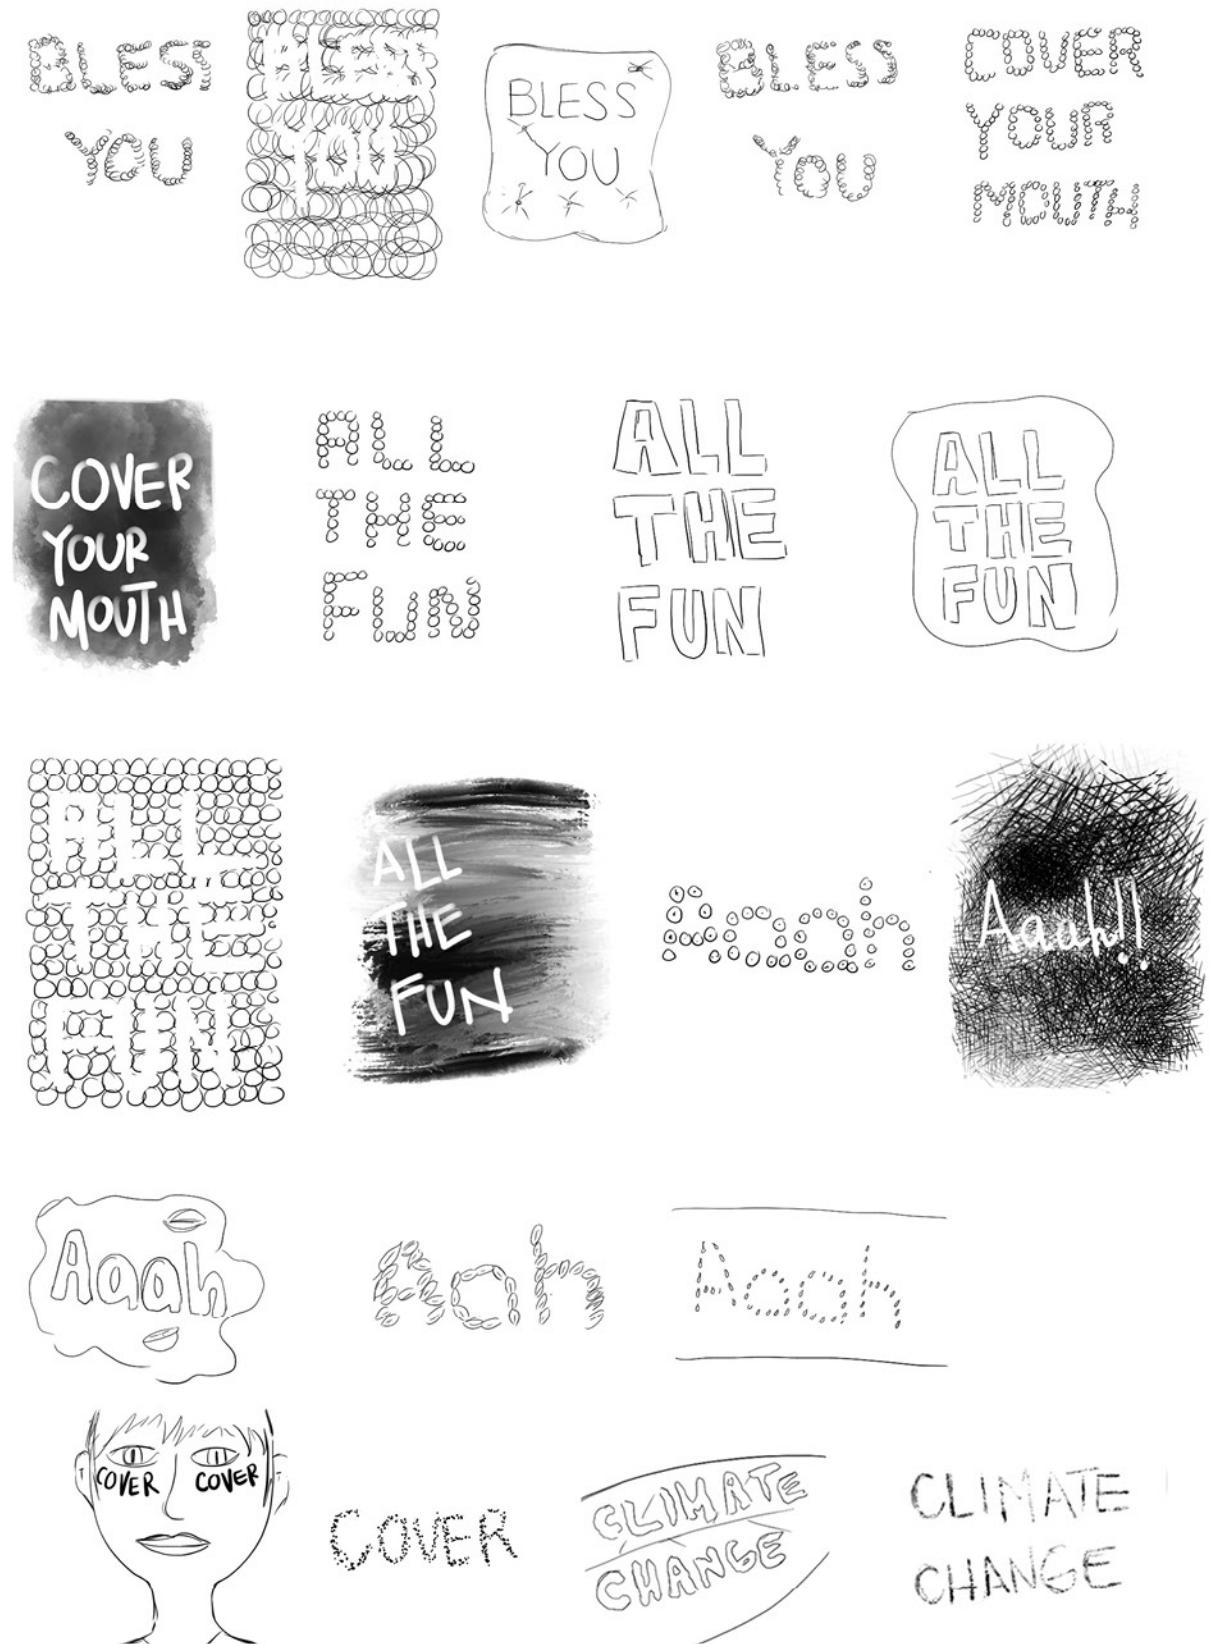 BLESS
YOU
BLESS
YOU
BLESS
YOU
BLESS
YOU
COVER
YOUR
MOUTH
COVER
YOUR
MOUTH
ALL
THE
FUN
ALL
THE
FUN
ALL
THE
FUN
ALL
THE
FUN
ALL
THE
FUN
Aaah
Aaah!!
Aaah
Aah
Aaah
COVER COVER
COVER
CLIMATE
CHANGE
CLIMATE
CHANGE